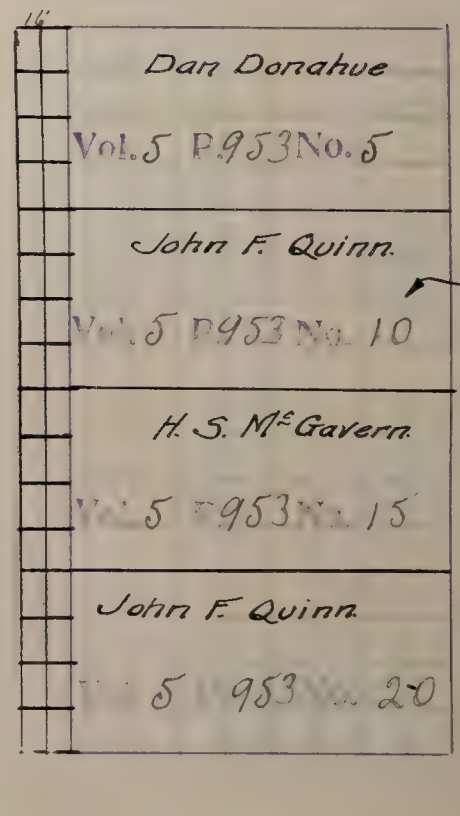 16
Dan Donahue
Vol. 5 P. 953 No. 5
John F. Quinn.
Vol. 5 P. 953 No. 10
H. S. McGavern.
Vol. 5 P. 953 No. 15
John F. Quinn.
Vol. 5 P. 953 No. 20